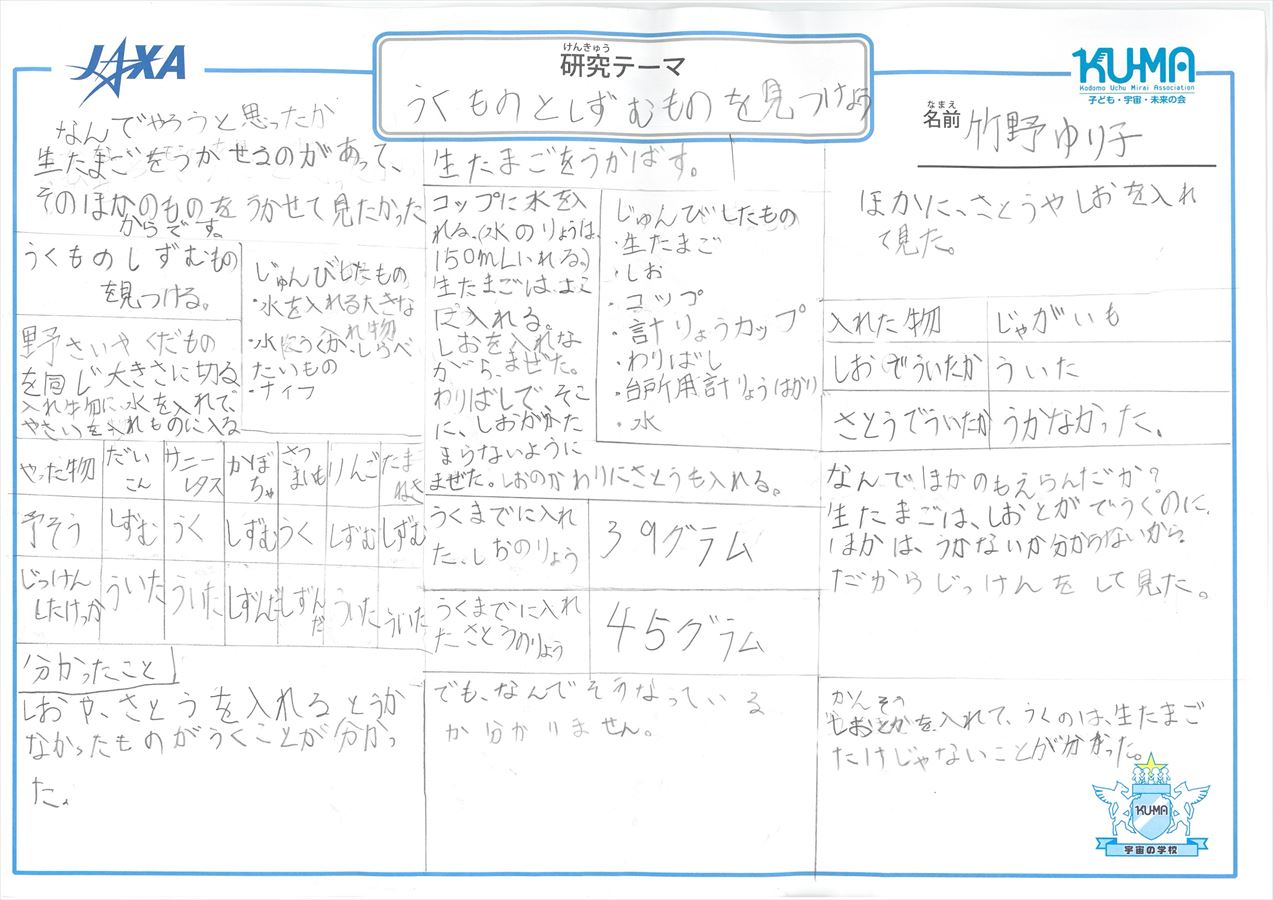 JAXA
けんきゅう
研究テーマ
うくものとしずむものを見つけよう
KU-MA
Kodomo Uchu Mirai Association
子ども・宇宙・未来の会
なまえ
名前 竹野ゆり子
なんでやろうと思ったか
生たまごをうかせるのがあって、
そのほかのものをうかせて見たかった
からです。
うくものしずむもの
を見つける。
じゅんびしたもの
・水を入れる大きな
入れ物
・水にうくか、しらべ
たいもの
・ナイフ
野さいやくだもの
を同じ大きさに切る
入れ物に、水を入れて、
やさいを入れものに入る
やった物 だいこん サニーレタス かぼちゃ さつまいも りんご たまねぎ
予そう しずむ うく しずむ うく しずむ しずむ
じっけんしたけっか ういた ういた しずんだ しずんだ ういた ういた
分かったこと
しおや、さとうを入れるとうか
なかったものがうくことが分かっ
た。
生たまごをうかばす。
コップに水を入
れる。(水のりょうは、
150mLいれる。)
生たまごは、よこ
に入れる。
しおを入れな
がら、まぜた。
わりばしで、そこ
に、しおがかた
まらないように
まぜた。しおのかわりにさとうも入れる。
じゅんびしたもの
・生たまご
・しお
・コップ
・計りょうカップ
・わりばし
・台所用計りょうはかり
・水
うくまでに入れ
た、しおのりょう
39グラム
うくまでに入れ
た、さとうのりょう
45グラム
でも、なんでそうなっている
か分かりません。
ほかに、さとうやしおを入れ
て見た。
入れた物 じゃがいも
しおでういたか ういた
さとうでういたか うかなかった。
なんでほかのもえらんだか?
生たまごは、しおとかでうくのに、
ほかは、うかないか分からないから
だからじっけんをして見た。
かんそう
しおとかを入れて、うくのは、生たまご
だけじゃないことが分かった。
KU-MA
宇宙の学校